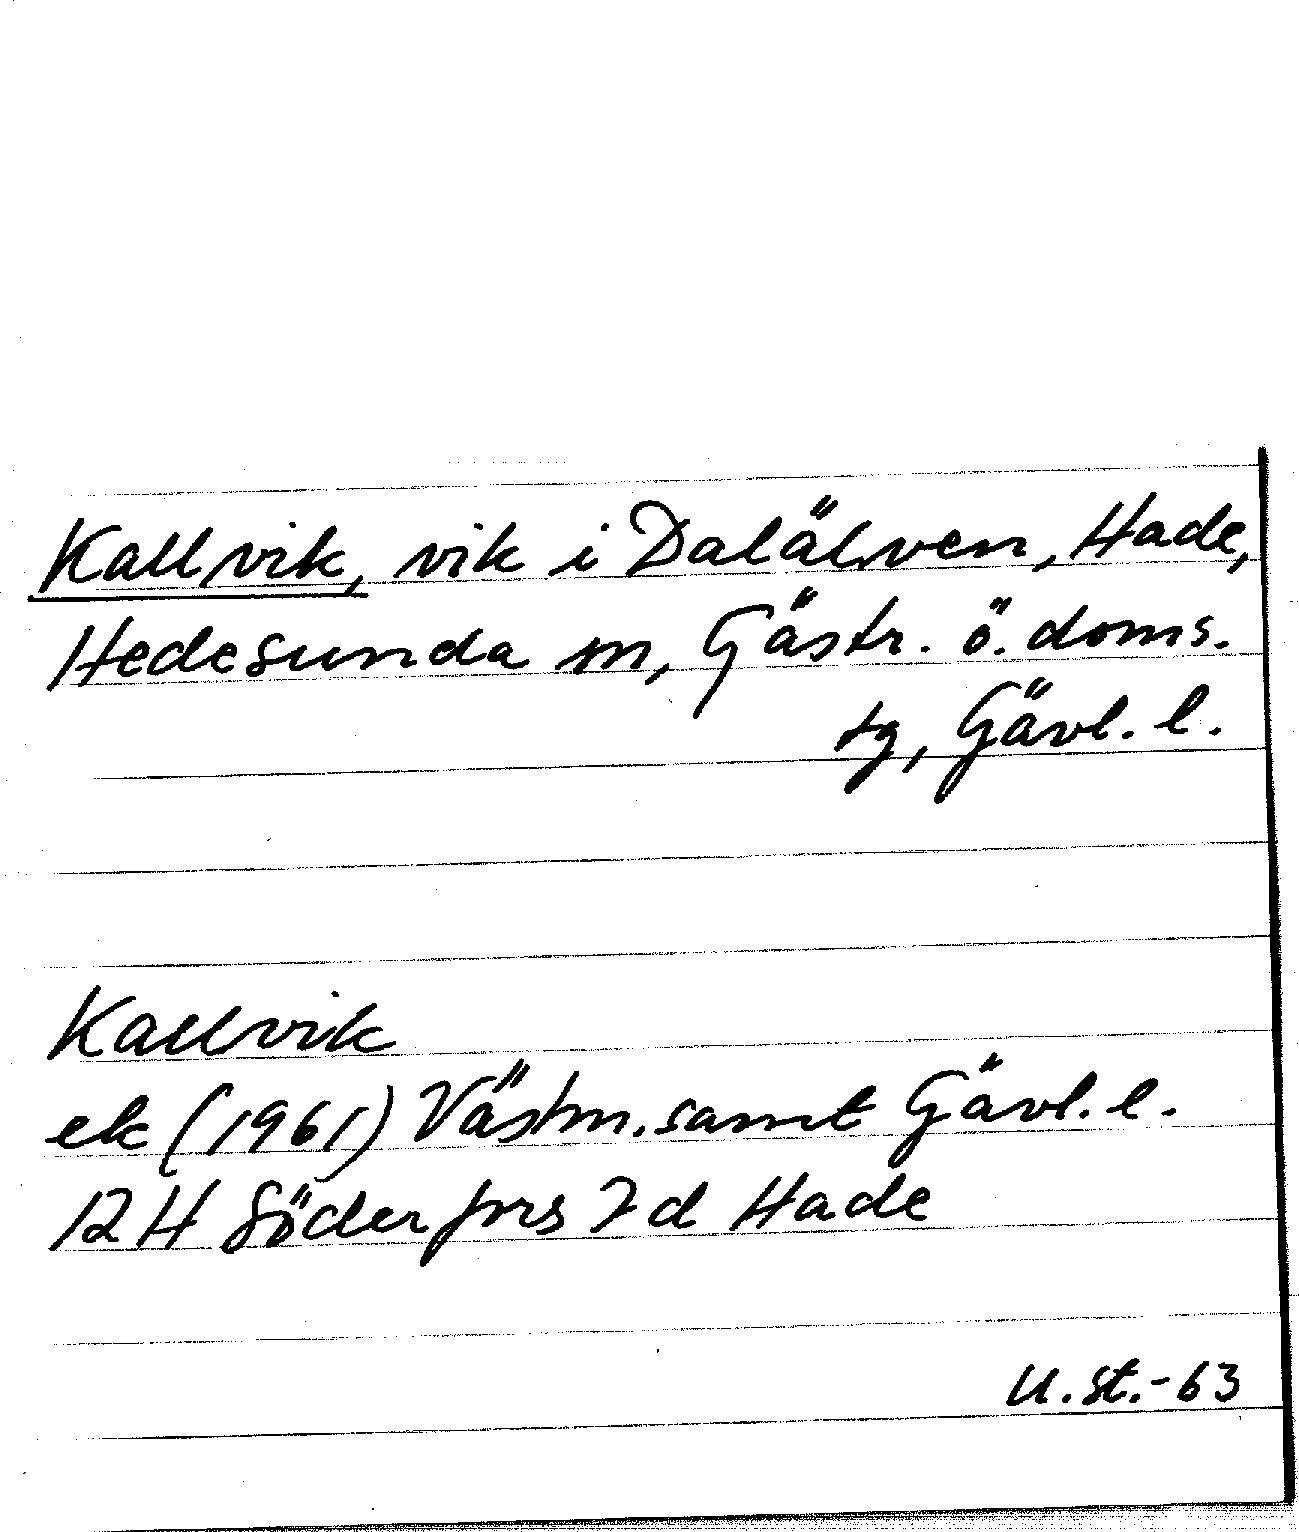 Kallvik, vik i Dalälven, Hade,
Hedesunda sn, Gästr. ö. doms.
tg, Gävl. l.
Kallvik
ek (1961) Västm. samt Gävl. l.
12 H Söderfors 7 d Hade
U. st. - 63